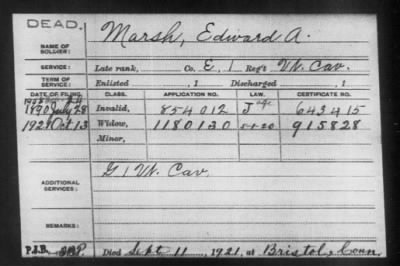 DEAD.
NAME OF SOLDIER: Marsh, Edward A.
SERVICE: Late rank, Co. E, 1 Reg't Vt. Cav.
TERM OF SERVICE: Enlisted , 1 Discharged , 1
DATE OF FILING. CLASS. APPLICATION NO. LAW. CERTIFICATE NO.
1890 July 28 Invalid, 854012 J 643415
1921 Oct 13 Widow, 1180130 5-1-20 915828
Minor,
ADDITIONAL SERVICES: G 1 Vt. Cav.
REMARKS:
P.I.B. Died Sept 11, 1921, at Bristol, Conn.